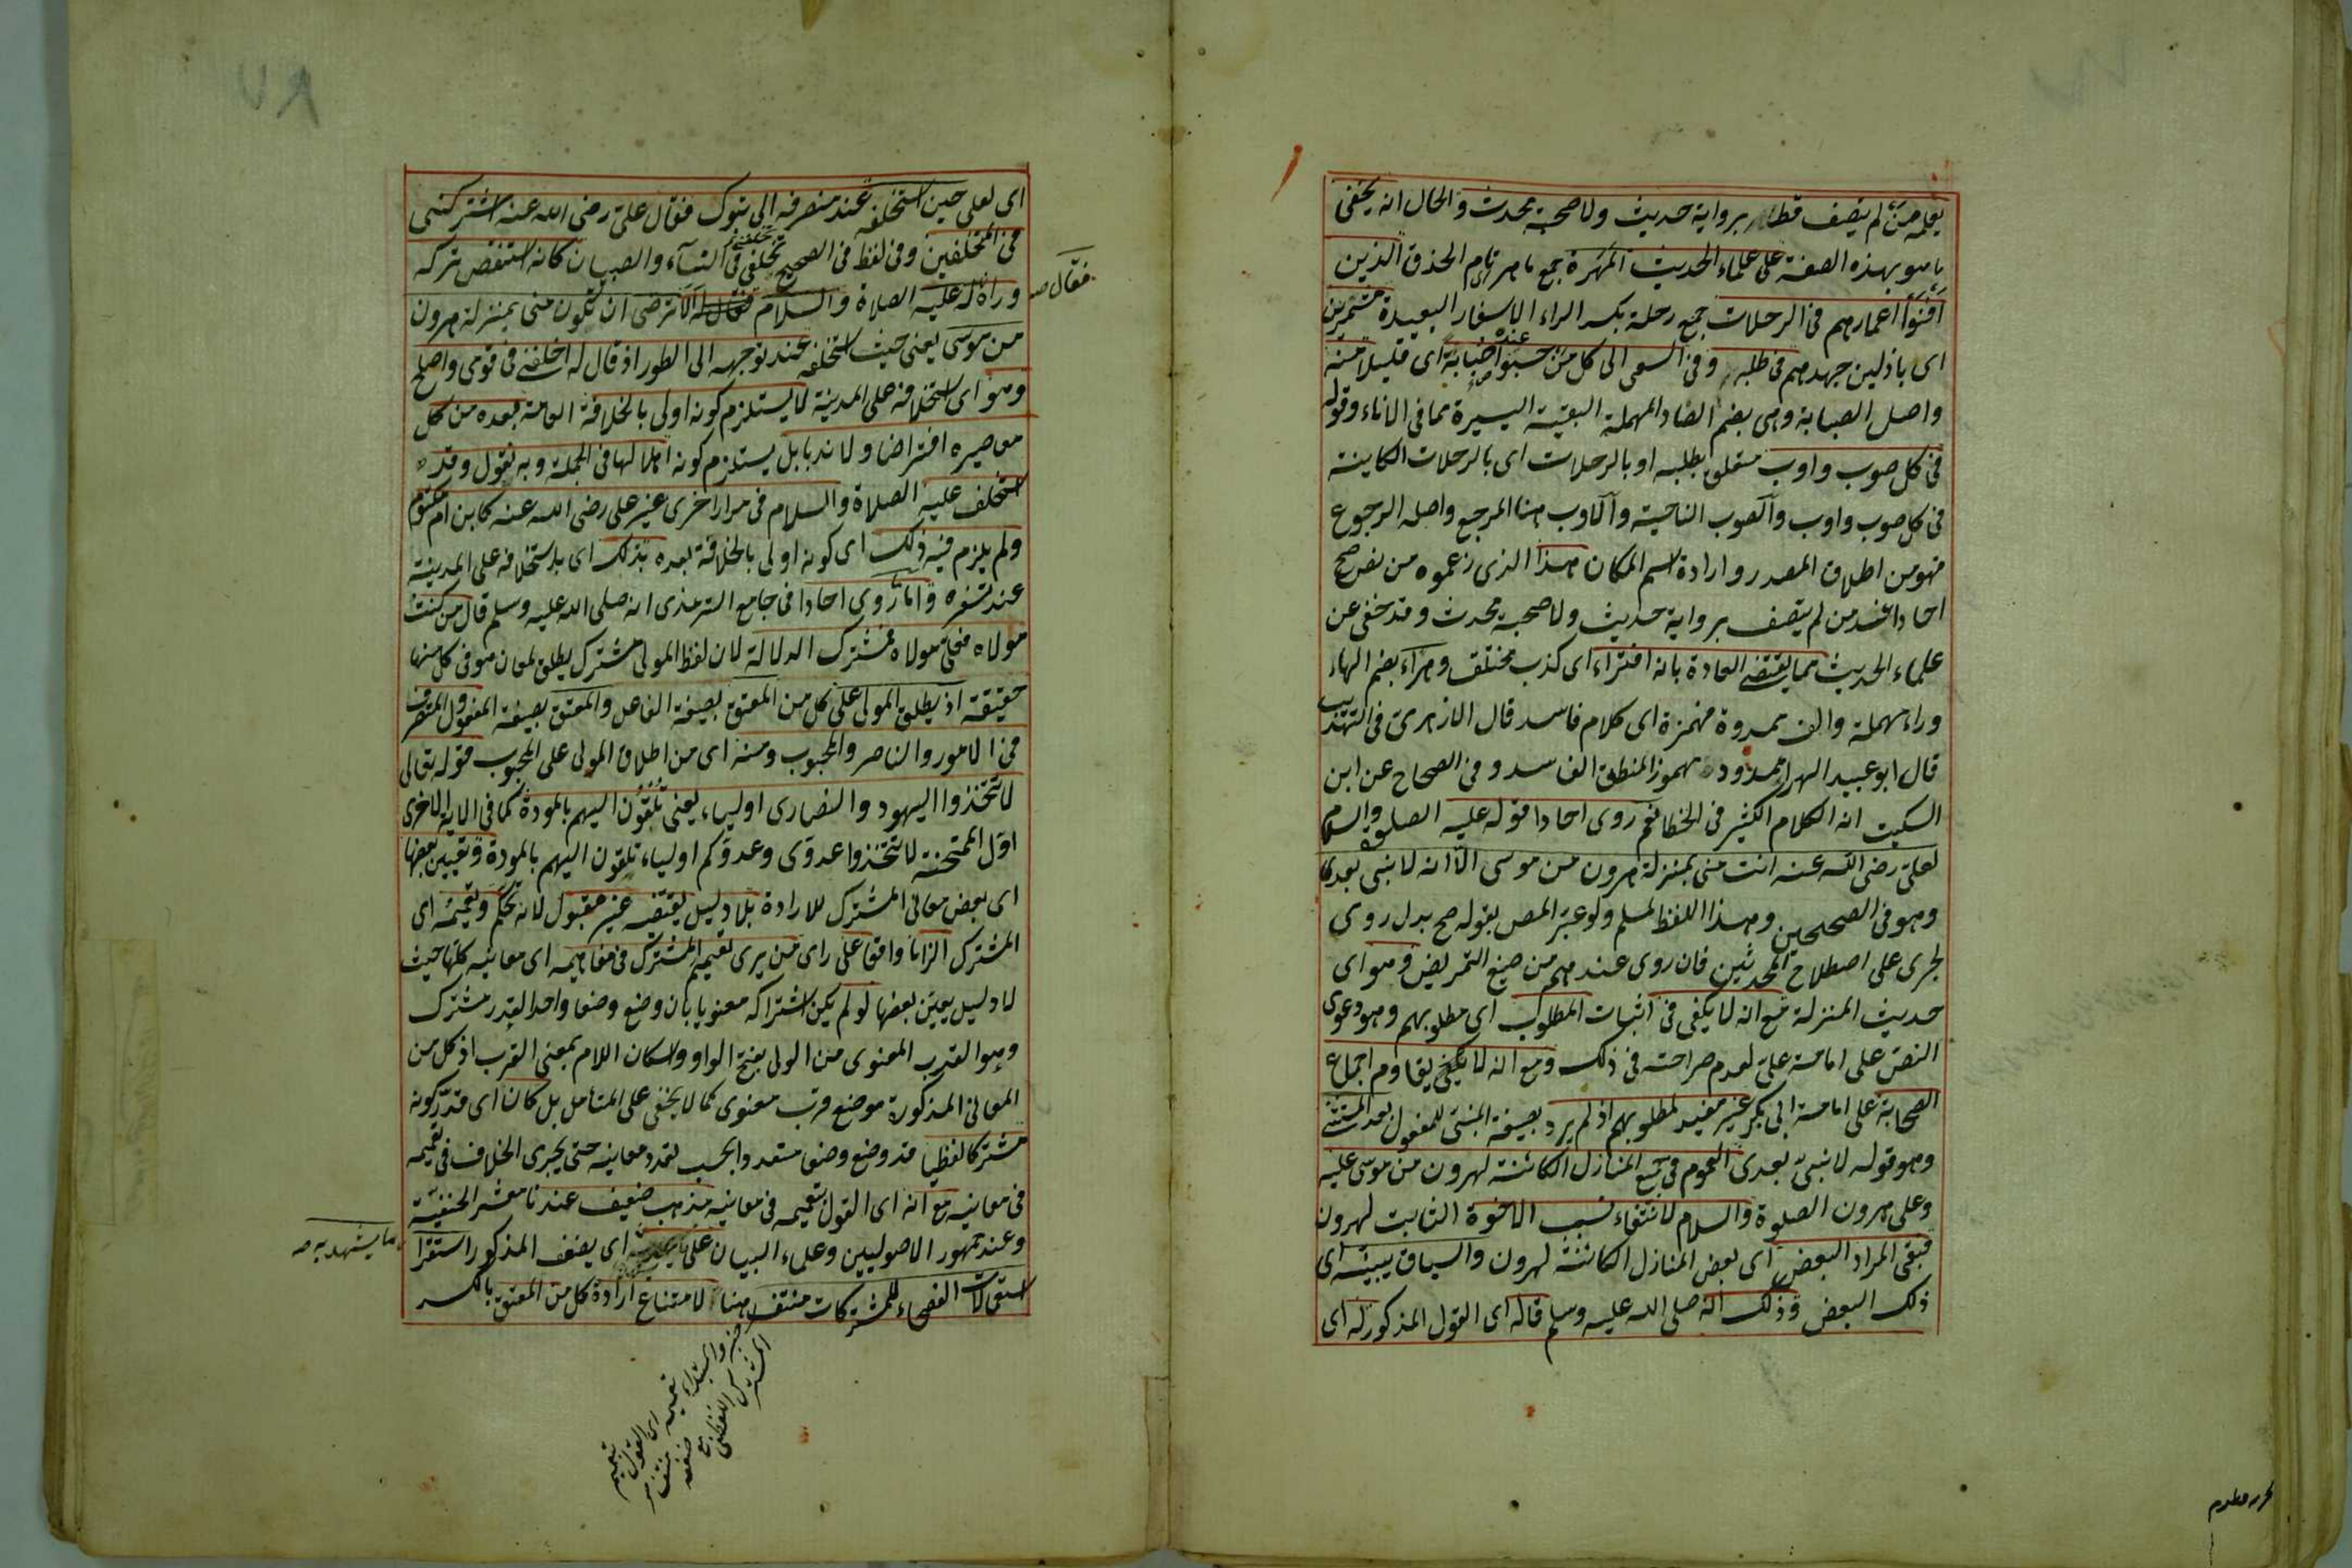 يعلمه من لم يتصف قط برواية حديث ولا صحبة محدث والحال انه يخفى
ما هو بهذه الصفة على علماء الحديث المهرة جمع ماهر تام الحذق الذين
افنوا اعمارهم فى الرحلات جمع رحلة بكسر الراء الاسفار البعيدة مشمرين
اى باذلين جهدهم فى طلبه وفى السعى الى كل من حسبوا عنده صبابة اى قليلا منه
واصل الصبابة وهى بضم الصاد المهملة البقية اليسيرة مما فى الاناء وقوله
فى كل صوب واوب متعلق بطلبه او بالرحلات اى بالرحلات الكاينة
فى كل صوب واوب والصوب الناحية والاوب هنا المرجع واصله الرجوع
فهو من اطلاق المصدر وارادة اسم المكان هذا الذى زعموه من نص صح
احادا عند من لم يتصف برواية حديث ولا صحبة محدث وقد خفى عن
علماء الحديث مما تقتضى العادة بانه افتراء اى كذب مختلق وهراء بضم الهاء
وراء مهملة والف ممدودة فهمزة اى كلام فاسد قال الازهرى فى التهذيب
قال ابو عبيد الهراء ممدود مهموز المنطق الفاسد وفى الصحاح عن ابن
السكيت انه الكلام الكثير فى الخطا نعم روى احادا قوله عليه الصلوة والسلام
لعلى رضى الله عنه انت منى بمنزلة هرون من موسى الا انه لا نبى بعدى
وهو فى الصحيحين وهذا اللفظ لمسلم ولو عبر المص بقوله صح بدل روى
لجرى على اصطلاح المحدثين فان روى عندهم من صيغ التمريض وهو اى
حديث المنزلة مع انه لا يكفى فى اثبات المطلوب اى مطلوبهم وهو دعوى
النص على امامة على لعدم صراحته فى ذلك ومع انه لا يقاوم اجماع
الصحابة على امامة ابى بكر غير مفيد لمطلوبهم اذ لم يرد بصيغة المبنى للمفعول بعد المستثنى
وهو قوله لا نبى بعدى العموم فى جميع المنازل الكائنة لهرون من موسى عليه
وعلى هرون الصلوة والسلام لانتفاء نسب الاخوة الثابت لهرون
فبقى المراد البعض اى بعض المنازل الكائنة لهرون والسياق يبينه اى
ذلك البعض وذلك انه صلى الله عليه وسلم قاله اى القول المذكور له اى
اى لعلى حين استخلفه عند منصرفه الى تبوك فقال على رضى الله عنه اتتركنى
فى المخلفين وفى لفظ فى الصحيح تخلفنى فى النساء والصبيان كانه استنقص تركه
وراءه له عليه الصلاة والسلام فقال له الا ترضى ان تكون منى بمنزلة هرون
فقال صه
من موسى يعنى حيث استخلفه عند توجهه الى الطور اذ قال له اخلفنى فى قومى واصلح
وهو اى استخلافه على المدينة لا يستلزم كونه اولى بالخلافة العامة بعده من كل
معاصريه افتراضا ولا ندبا بل يستلزم كونه اهلا لها فى الجملة وبه نقول وقد
استخلف عليه الصلاة والسلام فى مرار اخرى غير على رضى الله عنه كابن ام مكتوم
ولم يلزم فيه ذلك اى كونه اولى بالخلافة بعده بذلك اى باستخلافه على المدينة
عند سفره واما روى احادا فى جامع الترمذى انه صلى الله عليه وسلم قال من كنت
مولاه فعلى مولاه فمشترك الدلالة لان لفظ المولى مشترك يطلق لمعان هو فى كل منها
حقيقة اذ يطلق المولى على كل من المعتق بصيغة الفاعل والمعتق بصيغة المفعول والمتصرف
فى الامور والناصر والمحبوب ومنه اى من اطلاق المولى على المحبوب قوله تعالى
لا تتخذوا اليهود والنصارى اولياء يعنى تلقون اليهم بالمودة كما فى الاية الاخرى
اول الممتحنة لا تتخذوا عدوى وعدوكم اولياء تلقون اليهم بالمودة وتعيين بعضها
اى بعض معانى المشترك للارادة بلا دليل يقتضيه غير مقبول لانه تحكم وتعميمه اى
المشترك الزاما وافقا على راى من يرى تعميم المشترك فى مفاهيمه اى معانيه كلها حيث
لا دليل يعين بعضها لو لم يكن اشتراكه معنويا بان وضع وضعا واحدا لقدر مشترك
وهو القرب المعنوى من الولى بفتح الواو واسكان اللام بمعنى القرب اذ كل من
المعانى المذكورة موضع قرب معنوى كما لا يخفى على المتامل بل كان اى قدر كونه
مشتركا لفظيا قد وضع وضعا متعددا بحسب تعدد معانيه حتى يجرى الخلاف فى تعميمه
فى معانيه مع انه اى القول بتعميمه فى معانيه مذهب ضعيف عندنا معشر الحنفية
وعند جمهور الاصوليين وعلماء البيان على اى بضعف المذكور استقرا
ما يشهد به صه
استعمالات الفصحاء للمشتركات منتف هنا لامتناع ارادة كل من المعتق بالكسر
خبر والمبتداء تعميمه
المشترك اللفظى